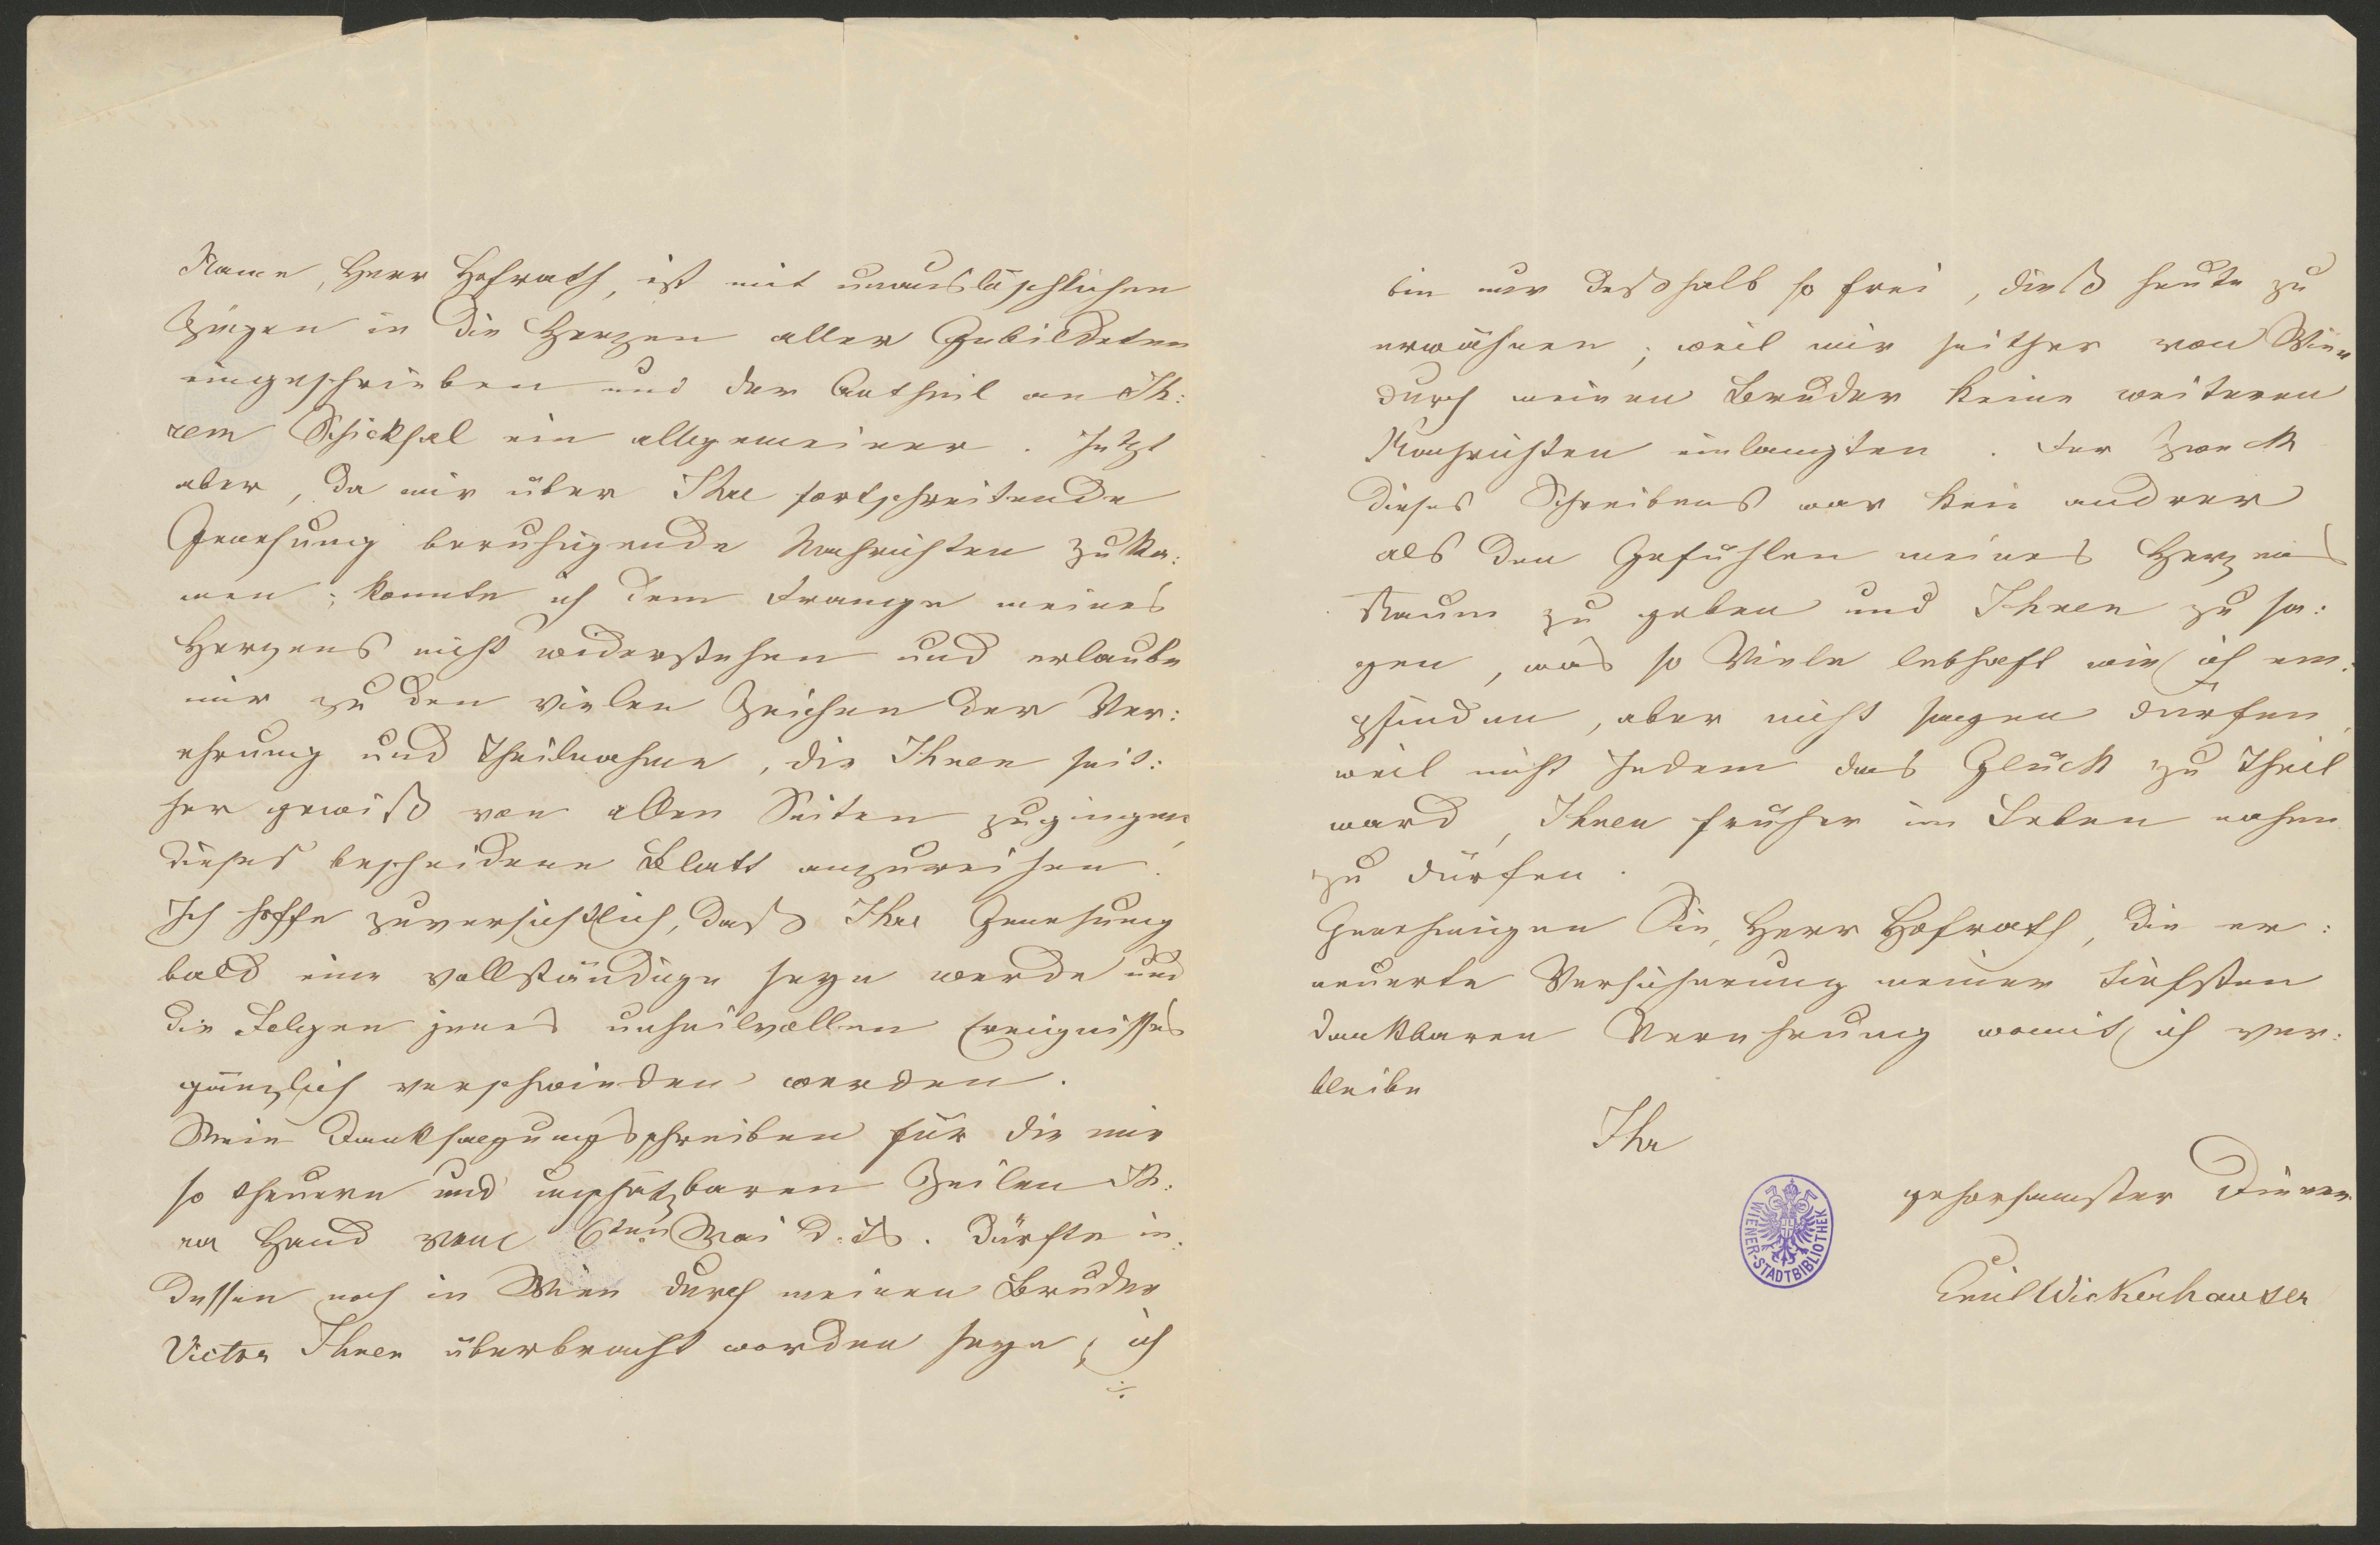 Name, Herr Hofrath, ist mit unauslöschlichen
Zügen in die Herzen aller Gebildeten
eingeschrieben und der Antheil an Ih:
rem Schicksal ein allgemeiner. Jetzt
aber, da mir über Ihre fortschreitende
Genesung beruhigende Nachrichten zuka:
men; konnte ich dem Drange meines
Herzens nicht widerstehen und erlaube
mir zu den vielen Zeichen der Ver:
ehrung und Theilnahme, die Ihnen seit:
her gewiß von allen Seiten zugingen,
dieses bescheidene Blatt anzureihen.
Ich hoffe zuversichtlich, daß Ihre Genesung
bald eine vollständige seyn werde und
die Folgen jenes unheilvollen Ereignisses
gänzlich verschwinden werden.
Mein Danksagungsschreiben für die mir
so theuern und unschätzbaren Zeilen Ih:
rer Hand vom 6ten Mai d. Js. dürfte in:
dessen noch in Wien durch meinen Bruder
Victor Ihnen überbracht worden seyn; ich
./.
bin nur deßhalb so frei, dieß heute zu
erwähnen; weil mir seither von Wien
durch meinen Bruder keine weiteren
Nachrichten einlangten. Der Zweck
dieses Schreibens war kein andrer
als den Gefühlen meines Herzens
Raum zu geben und Ihnen zu sa:
gen, was so Viele lebhaft wie ich em:
pfinden, aber nicht sagen dürfen,
weil nicht Jedem das Glück zu Theil
ward, Ihnen früher im Leben nahen
zu dürfen.
Genehmigen Sie, Herr Hofrath, die er:
neuerte Versicherung meiner tiefsten
dankbaren Verehrung womit ich ver:
bleibe
Ihr
gehorsamster Diener
Emil Wickerhauser
WIENER-STADTBIBLIOTHEK